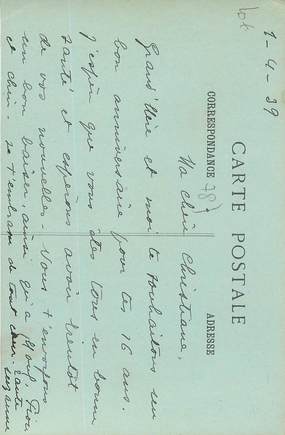 lot
1-4-39
CARTE POSTALE
CORRESPONDANCE
ADRESSE
787
Ma chère Christiane,
Grand'Mère et moi te souhaitons un
bon anniversaire pour tes 16 ans.
J'espère que vous êtes tous en bonne
santé et espérons avoir bientôt
de vos nouvelles - Nous t'envoyons
un bon baiser, ainsi qu'à
et chéri. Je t'embrasse de tout cœur. Tante
Suzanne